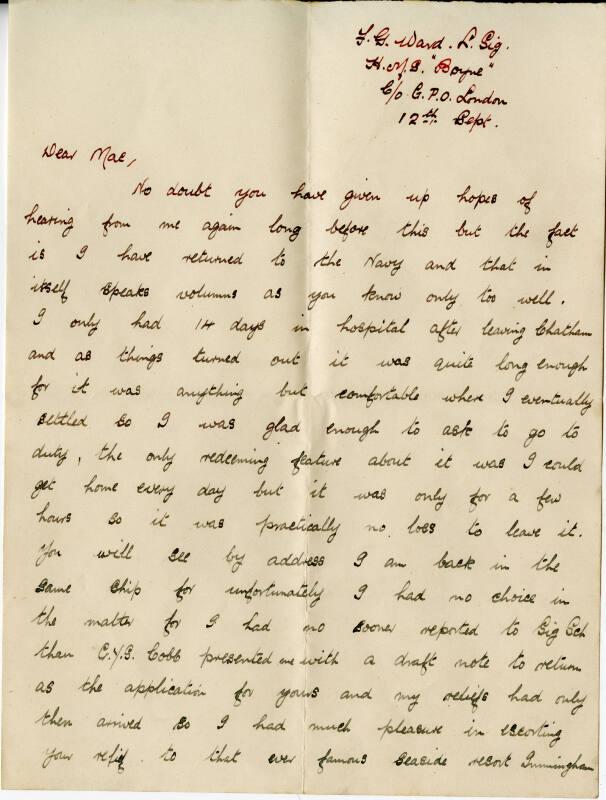 F. G. Ward. L. Sig.
H.M.S. "Boyne"
C/o G.P.O. London
12th Sept.
Dear Mac,
No doubt you have given up hopes of
hearing from me again long before this but the fact
is I have returned to the Navy and that in
itself speaks volumns as you know only too well.
I only had 14 days in hospital after leaving Chatham
and as things turned out it was quite long enough
for it was anything but comfortable where I eventually
settled so I was glad enough to ask to go to
duty, the only redeeming feature about it was I could
get home every day but it was only for a few
hours so it was practically no loss to leave it.
You will see by address I am back in the
same ship for unfortunately I had no choice in
the matter for I had no sooner reported to Sig Sch
than C.Y.S. Cobb presented me with a draft note to return
as the application for yours and my reliefs had only
then arrived so I had much pleasure in escorting
your relief to that ever famous seaside resort Immingham